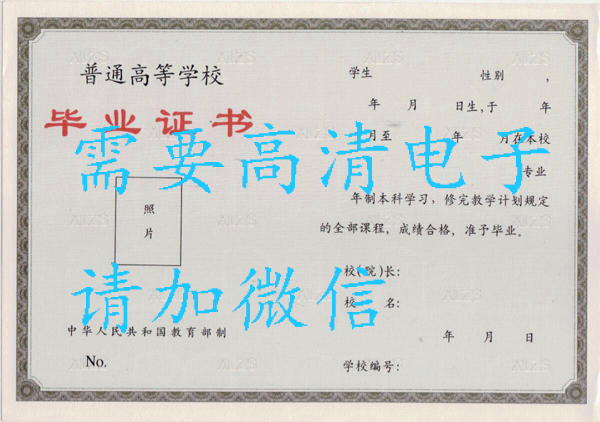 普通高等学校
毕业证书
照
片
中华人民共和国教育部制
No.
学生 性别 ，
年 月 日生，于 年
月至 年 月在本校
专业
年制本科学习，修完教学计划规定
的全部课程，成绩合格，准予毕业。
校（院）长：
校 名：
年 月 日
学校编号：
需要高清电子
请加微信